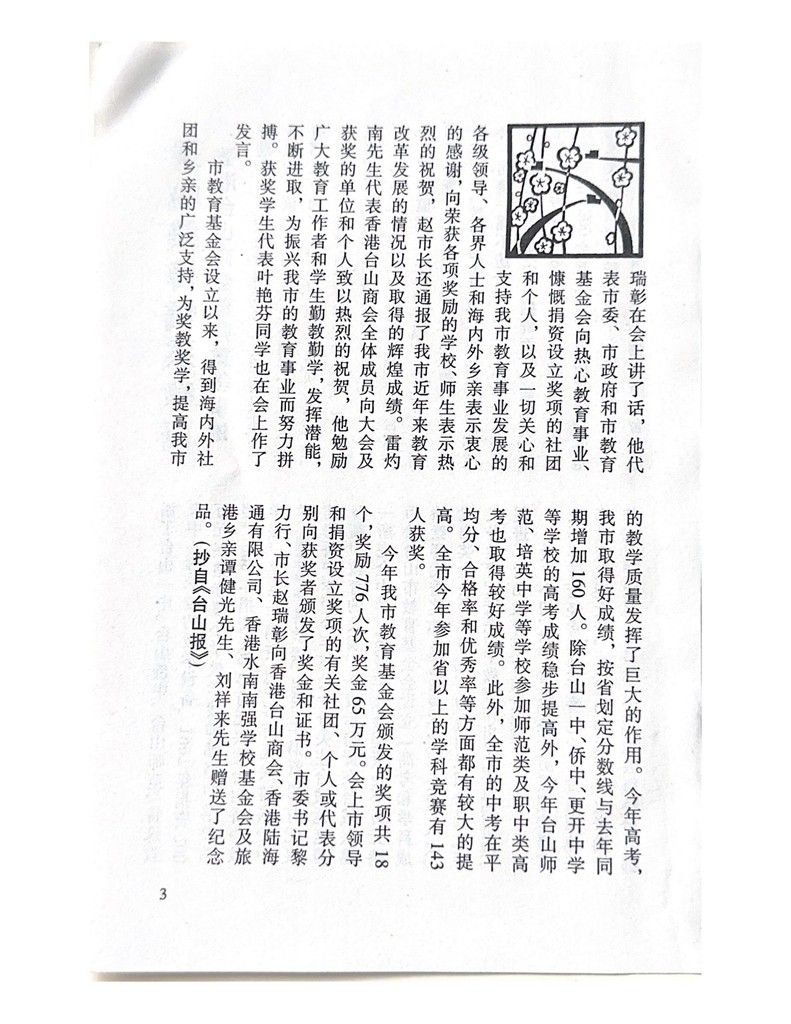 瑞彰在会上讲了话，他代
表市委、市政府和市教育
基金会向热心教育事业、
慷慨捐资设立奖项的社团
和个人，以及一切关心和
支持我市教育事业发展的
各级领导、各界人士和海内外乡亲表示衷心
的感谢，向荣获各项奖励的学校、师生表示热
烈的祝贺，赵市长还通报了我市近年来教育
改革发展的情况以及取得的辉煌成绩。雷灼
南先生代表香港台山商会全体成员向大会及
获奖的单位和个人致以热烈的祝贺，他勉励
广大教育工作者和学生勤教勤学，发挥潜能，
不断进取，为振兴我市的教育事业而努力拼
搏。获奖学生代表叶艳芬同学也在会上作了
发言。
市教育基金会设立以来，得到海内外社
团和乡亲的广泛支持，为奖教奖学，提高我市
的教学质量发挥了巨大的作用。今年高考，
我市取得好成绩，按省划定分数线与去年同
期增加160人。除台山一中、侨中、更开中学
等学校的高考成绩稳步提高外，今年台山师
范、培英中学等学校参加师范类及职中类高
考也取得较好成绩。此外，全市的中考在平
均分、合格率和优秀率等方面都有较大的提
高。全市今年参加省以上的学科竞赛有143
人获奖。
今年我市教育基金会颁发的奖项共18
个，奖励776人次，奖金65万元。会上市领导
和捐资设立奖项的有关社团、个人或代表分
别向获奖者颁发了奖金和证书。市委书记黎
力行、市长赵瑞彰向香港台山商会、香港陆海
通有限公司、香港水南南强学校基金会及旅
港乡亲谭健光先生、刘祥来先生赠送了纪念
品。（抄自《台山报》）
3